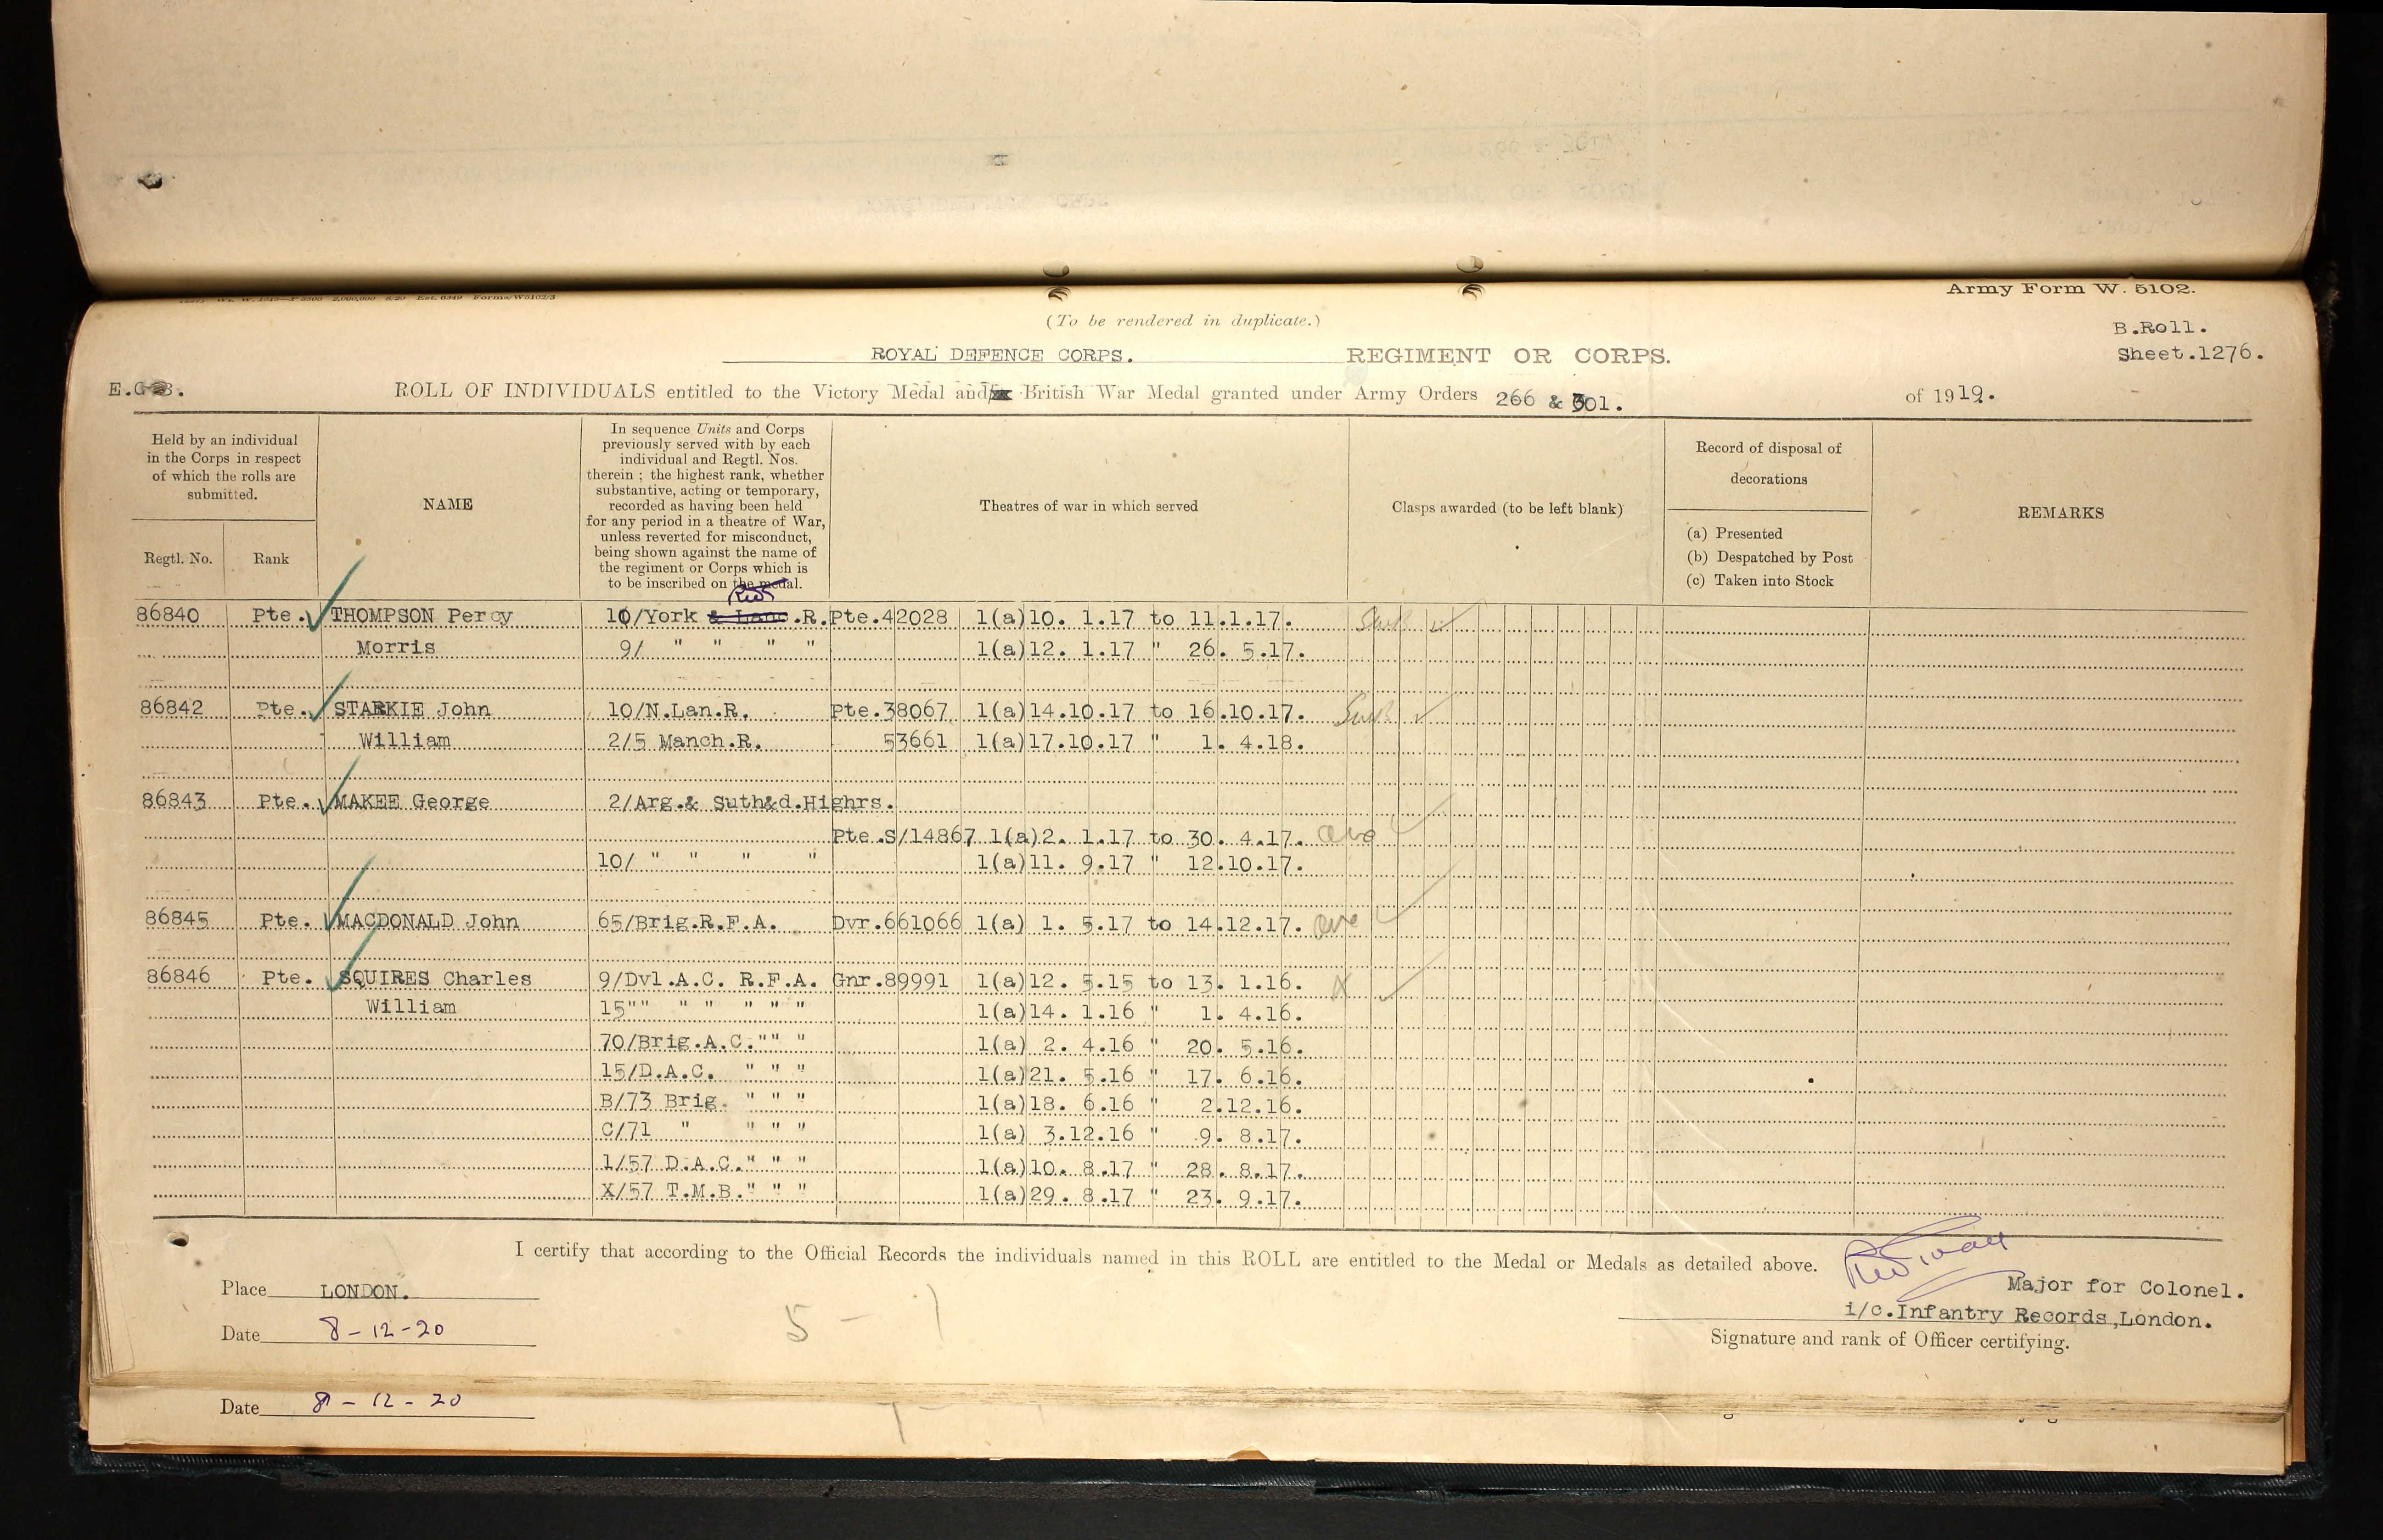 Army Form W. 5102.
(To be rendered in duplicate.)
B.Roll.
Sheet.1276.
ROYAL DEFENCE CORPS. REGIMENT OR CORPS.
ROLL OF INDIVIDUALS entitled to the Victory Medal and British War Medal granted under Army Orders 266 & 301. of 1919.
Held by an individual
in the Corps in respect
of which the rolls are
submitted.
Regtl. No. Rank
NAME
In sequence Units and Corps
previously served with by each
individual and Regtl. Nos.
therein ; the highest rank, whether
substantive, acting or temporary,
recorded as having been held
for any period in a theatre of War,
unless reverted for misconduct,
being shown against the name of
the regiment or Corps which is
to be inscribed on the medal.
Theatres of war in which served
Clasps awarded (to be left blank)
Record of disposal of
decorations
(a) Presented
(b) Despatched by Post
(c) Taken into Stock
REMARKS
86840 Pte. THOMPSON Percy 10/York & Lanc.R. Pte.42028 1(a)10. 1.17 to 11.1.17.
Morris 9/ " " " " 1(a)12. 1.17 " 26. 5.17.
86842 Pte. STARKIE John 10/N.Lan.R. Pte.38067 1(a)14.10.17 to 16.10.17.
William 2/5 Manch.R. 53661 1(a)17.10.17 " 1. 4.18.
86843 Pte. MAKEE George 2/Arg.& Suth&d.Highrs.
Pte.S/14867 1(a)2. 1.17 to 30. 4.17.
10/ " " " " 1(a)11. 9.17 " 12.10.17.
86845 Pte. MACDONALD John 65/Brig.R.F.A. Dvr.661066 1(a) 1. 5.17 to 14.12.17.
86846 Pte. SQUIRES Charles 9/Dvl.A.C. R.F.A. Gnr.89991 1(a)12. 5.15 to 13. 1.16.
William 15"" " " " " " 1(a)14. 1.16 " 1. 4.16.
70/Brig.A.C."" " 1(a) 2. 4.16 " 20. 5.16.
15/D.A.C. " " " 1(a)21. 5.16 " 17. 6.16.
B/73 Brig. " " " 1(a)18. 6.16 " 2.12.16.
C/71 " " " " 1(a) 3.12.16 " 9. 8.17.
1/57 D.A.C." " " 1(a)10. 8.17 " 28. 8.17.
X/57 T.M.B." " " 1(a)29. 8.17 " 23. 9.17.
I certify that according to the Official Records the individuals named in this ROLL are entitled to the Medal or Medals as detailed above.
Place LONDON.
Major for Colonel.
i/c.Infantry Records,London.
Date 8-12-20
Signature and rank of Officer certifying.
5 - 1
Date 8-12-20